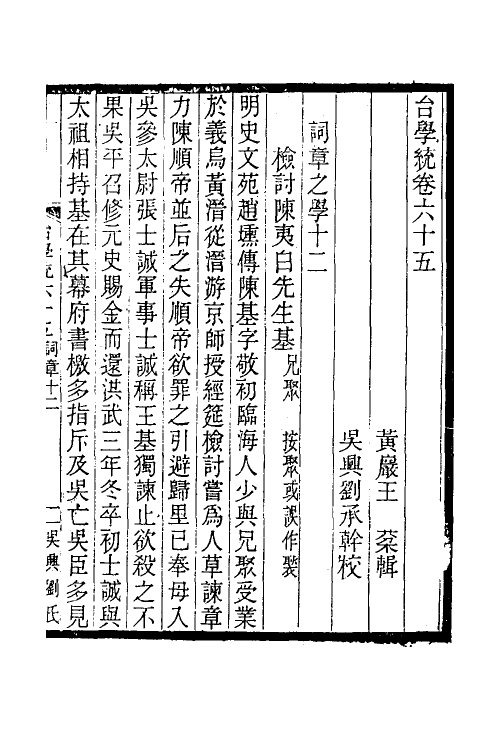 台學統卷六十五
黃巖王 棻輯
吳興劉承幹校
詞章之學十二
檢討陳夷白先生基 兄聚 按聚或誤作褧
明史文苑趙壎傳陳基字敬初臨海人少與兄聚受業
於義烏黃溍從溍游京師授經筵檢討嘗爲人草諫章
力陳順帝並后之失順帝欲罪之引避歸里已奉母入
吳參太尉張士誠軍事士誠稱王基獨諫止欲殺之不
果吳平召修元史賜金而還洪武三年冬卒初士誠與
太祖相持基在其幕府書檄多指斥及吳亡吳臣多見
台學統六十五詞章十二
一吳興劉氏